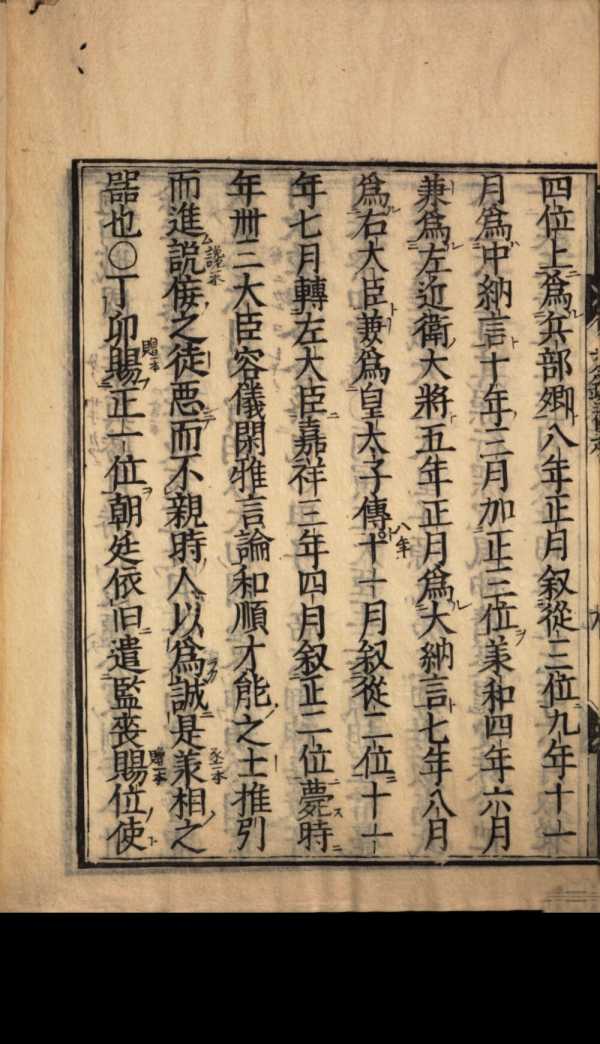 四位上爲兵部卿八年正月叙從三位九年十一
月爲中納言十年三月加正三位羕和四年六月
兼爲左近衛大將五年正月爲大納言七年八月
爲右大臣兼爲皇太子傳十一月叙從二位十一
八年
年七月轉左大臣嘉祥三年四月叙正二位薨時
年卌三大臣容儀閑雅言論和順才能之士推引
而進説侫之徒惡而不親時人以爲誠是羕相之
器也〇丁卯賜正一位朝廷依旧遣監喪賜位使
贈本
贈一本